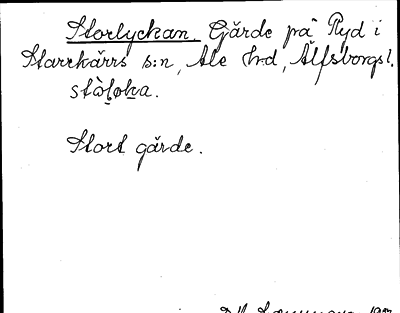 Storlyckan. Gärde på Ryd i
Starrkärrs s:n, Ale h:d, Älfsborgs l.
Stort gärde.